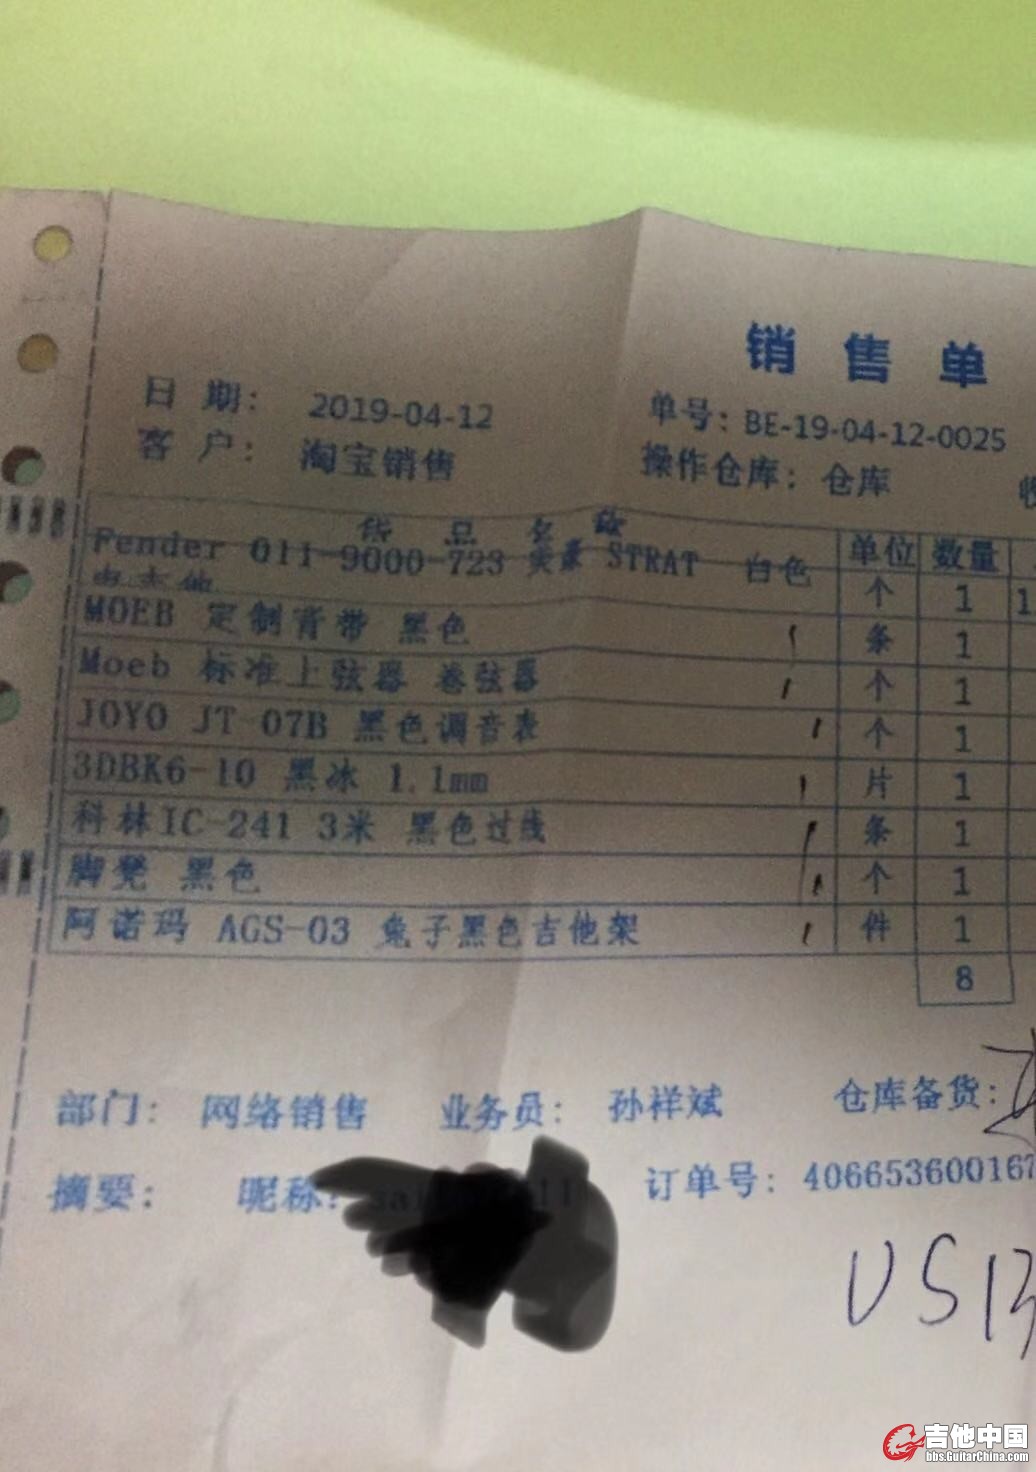 销售单
日 期： 2019-04-12 单号：BE-19-04-12-0025
客 户： 淘宝销售 操作仓库：仓库
货品名称 单位 数量
Fender 011-9000-723 美豪 STRAT 白色 个 1 1
电吉他
MOEB 定制背带 黑色 条 1
Moeb 标准上弦器 卷弦器 个 1
JOYO JT-07B 黑色调音表 个 1
3DBK6-10 黑冰 1.1mm 片 1
科林IC-241 3米 黑色过线 条 1
脚凳 黑色 个 1
阿诺玛 AGS-03 兔子黑色吉他架 件 1
8
部门： 网络销售 业务员： 孙祥斌 仓库备货：
摘要： 昵称： 订单号：40665360016
US13
吉他中国
bbs.GuitarChina.com